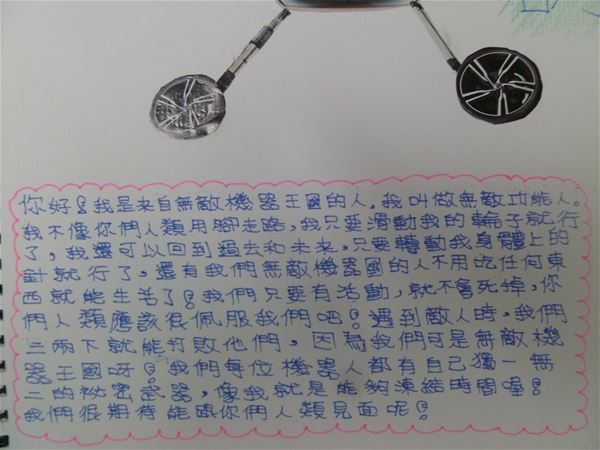 你好!我是來自無敵機器王國的人,我叫做無敵功能人。
我不像你們人類用腳走路,我只要滑動我的輪子就行
了,我還可以回到過去和未來,只要轉動我身體上的
針就行了,還有我們無敵機器國的人不用吃任何東
西就能生活了!我們只要有活動,就不會死掉,你
們人類應該很佩服我們吧!遇到敵人時,我們
三兩下就能打敗他們,因為我們可是無敵機
器王國呀!我們每位機器人都有自己獨一無
二的祕密武器,像我就是能夠凍結時間喔!
我們很期待能跟你們人類見面呢!